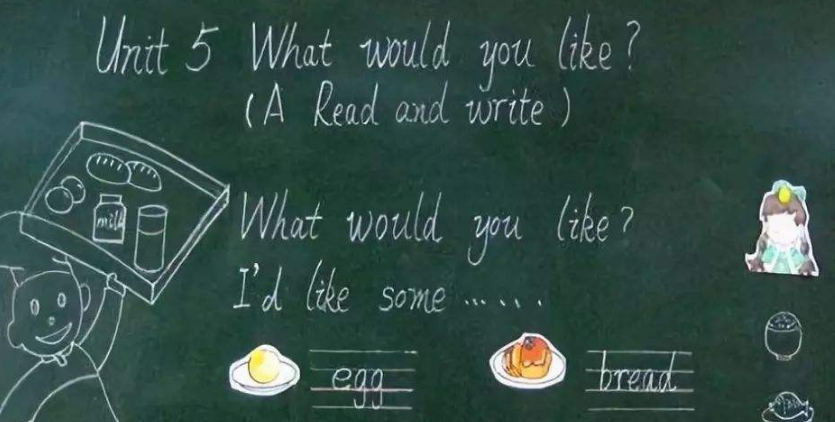 Unit 5 What would you like?
(A Read and write)
milk
What would you like?
I'd like some ......
egg
bread